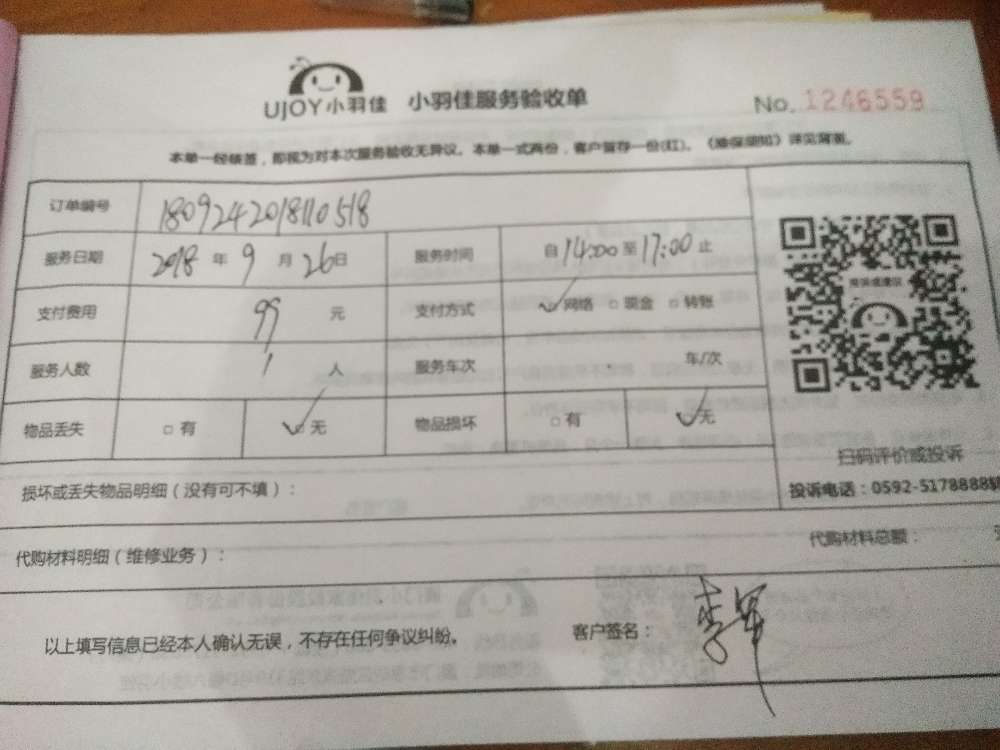 UJOY小羽佳 小羽佳服务验收单 No. 1246559
本单一经核签，即视为对本次服务验收无异议。本单一式两份，客户留存一份(红)。《维保须知》详见背面。
订单编号 1809242018110518
服务日期 2018 年 9 月 26 日 服务时间 自 14:00 至 17:00 止
支付费用 99 元 支付方式 ☑网络 □现金 □转账
服务人数 1 人 服务车次 车/次
物品丢失 □有 ☑无 物品损坏 □有 ☑无
扫码评价或投诉
损坏或丢失物品明细（没有可不填）： 投诉电话：0592-5178888转
代购材料明细（维修业务）： 代购材料总额：
以上填写信息已经本人确认无误，不存在任何争议纠纷。 客户签名： 李军